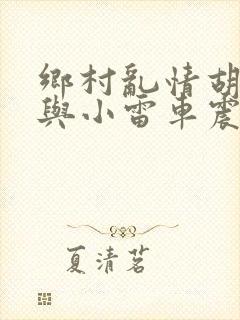 鄉村亂情胡
與小雷車震
夏清茗